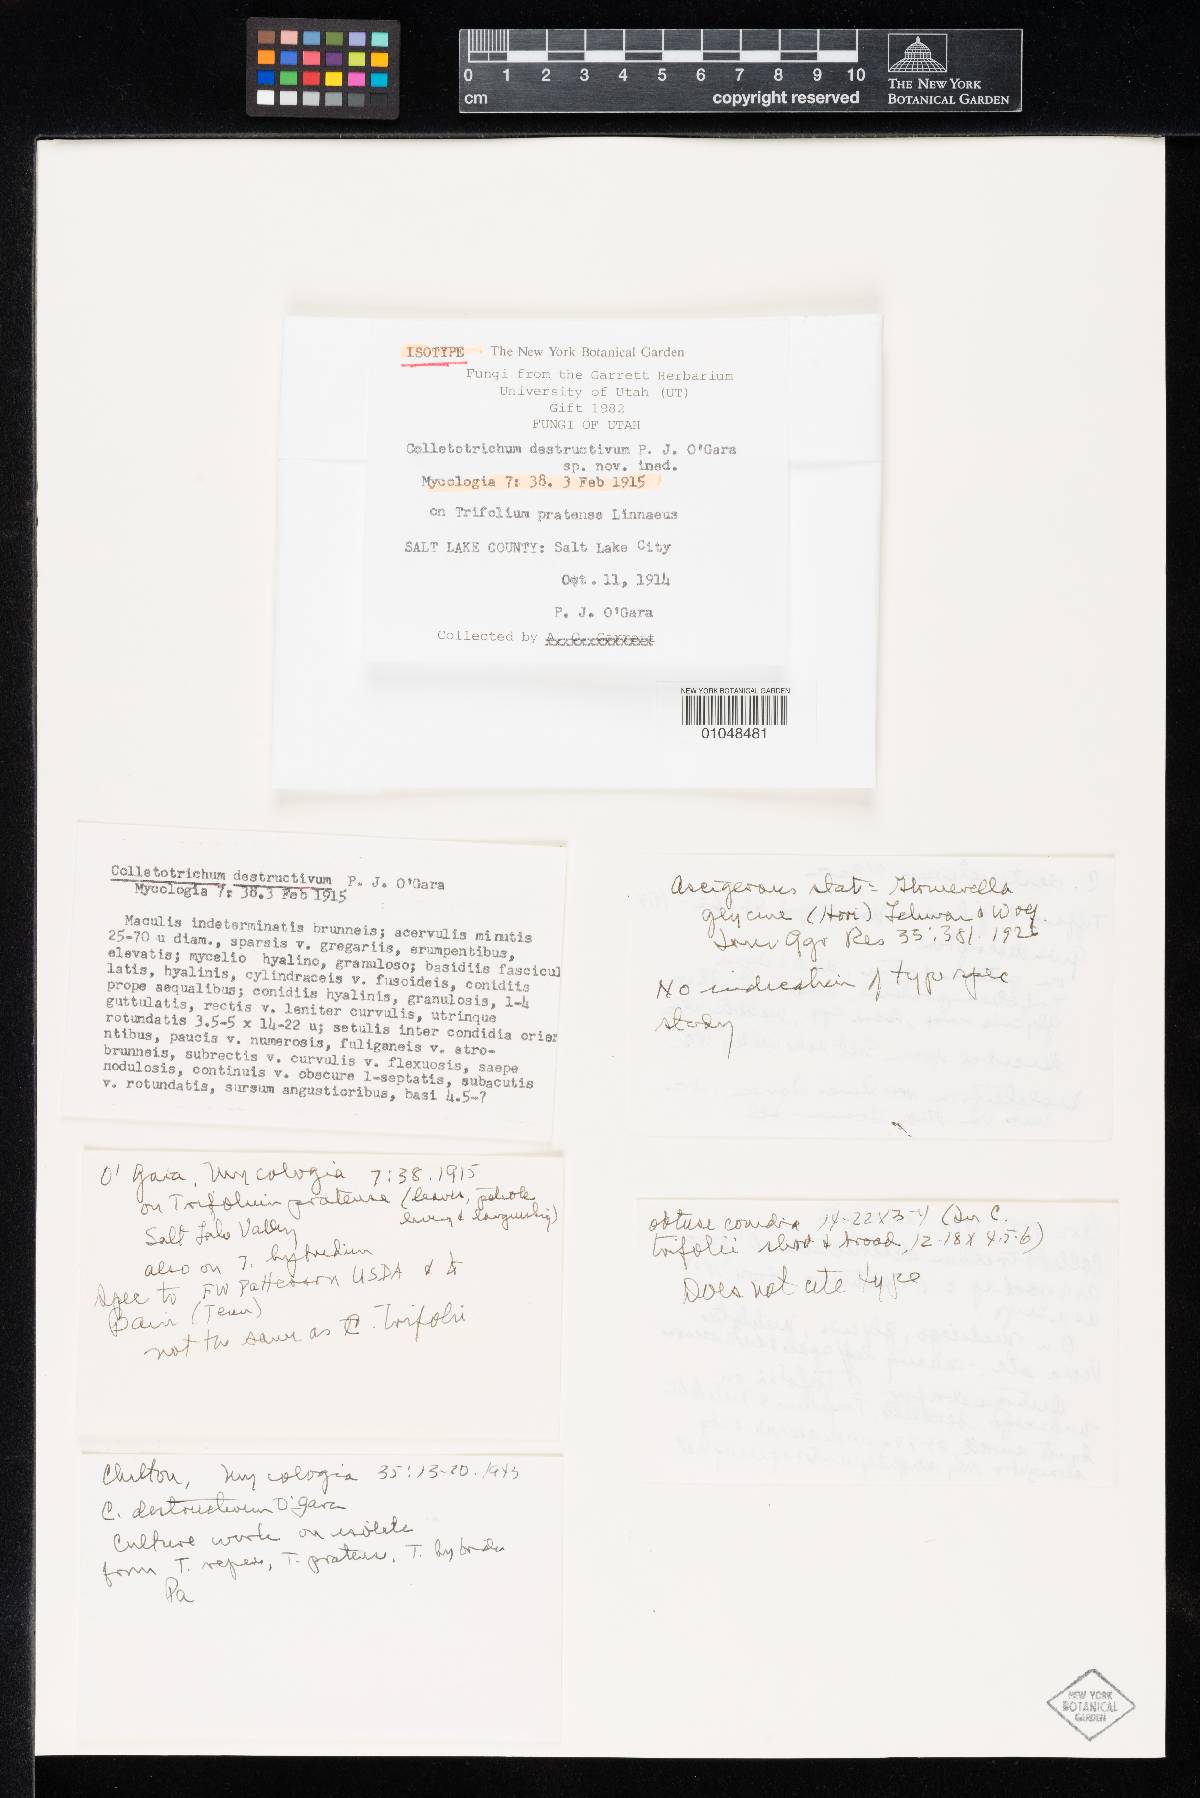 0 1 2 3 4 5 6 7 8 9 10
cm
copyright reserved
THE NEW YORK
BOTANICAL GARDEN
ISOTYPE The New York Botanical Garden
Fungi from the Garrett Herbarium
University of Utah (UT)
Gift 1982
FUNGI OF UTAH
Colletotrichum destructivum P. J. O'Gara
sp. nov. ined.
Mycologia 7: 38. 3 Feb 1915
on Trifolium pratense Linnaeus
SALT LAKE COUNTY: Salt Lake City
Oct. 11, 1914
P. J. O'Gara
Collected by A. O. Garrett
NEW YORK BOTANICAL GARDEN
01048481
Colletotrichum destructivum P. J. O'Gara
Mycologia 7: 38.3 Feb 1915
Maculis indeterminatis brunneis; acervulis minutis
25-70 u diam., sparsis v. gregariis, erumpentibus,
elevatis; mycelio hyalino, granuloso; basidiis fascicul
latis, hyalinis, cylindraceis v. fusoideis, conidiis
prope aequalibus; conidiis hyalinis, granulosis, 1-4
guttulatis, rectis v. leniter curvulis, utrinque
rotundatis 3.5-5 x 14-22 u; setulis inter condidia orien
ntibus, paucis v. numerosis, fuligineis v. atro-
brunneis, subrectis v. curvulis v. flexuosis, saepe
nodulosis, continuis v. obscure 1-septatis, subacutis
v. rotundatis, sursum angustioribus, basi 4.5-7
O'Gara, Mycologia 7:38.1915
on Trifolium pratense (leaves, petiole
Salt Lake Valley
also on T. hybridum
Spec to FW Patterson USDA & to
Bain (Tenn)
not the same as C. Trifolii
Chilton, Mycologia 35:13-20.1943
C. destructivum O'Gara
Culture work on isolate
from T. repens, T. pratense, T. hybridum
Pa
Ascigerous stat = Glomerella
glycine (Hori) Lehman & Wolf.
Jour Agr Res 33:381.1926
No indication of type spec
study
obtuse conidia 14-22x3-4 (In C.
trifolii short & broad, 12-18x4.5-6)
Does not cite type
NEW YORK
BOTANICAL
GARDEN